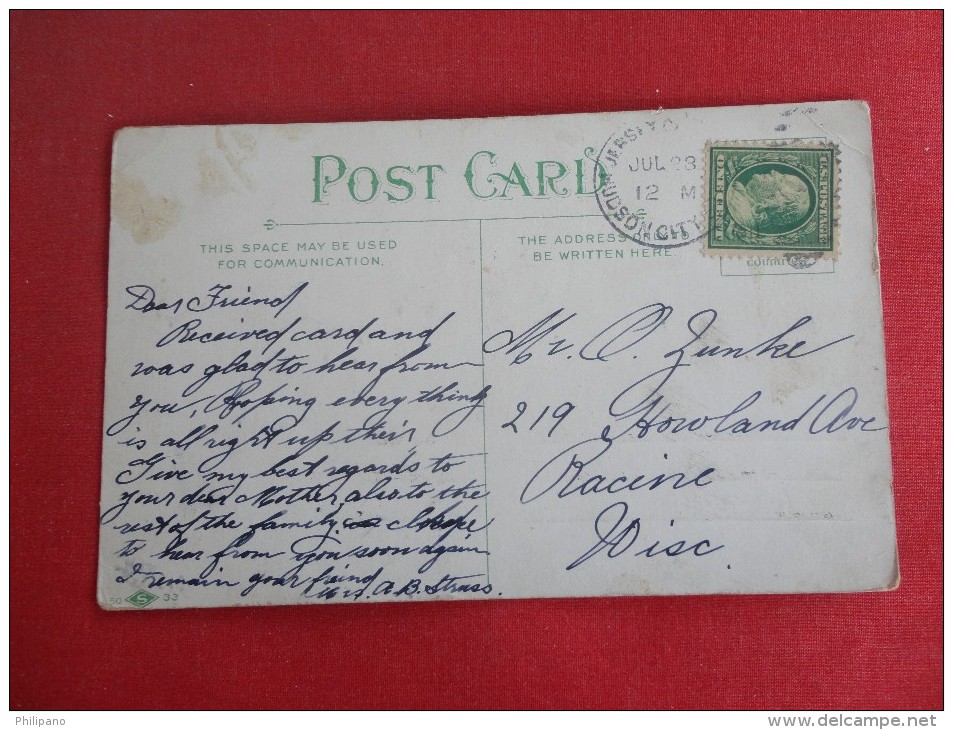 POST CARD
JERSEY
JUL 23
12 M
HUDSON CITY
UNITED STATES
THIS SPACE MAY BE USED
FOR COMMUNICATION.
THE ADDRESS
BE WRITTEN HERE
Dear Friend
Received card and
was glad to hear from
you, Hoping every thing
is all right up their,
Give my best regards to
your dear Mother, also to the
rest of the family. hope
to hear from you soon again
I remain your friend
A. B. Strass.
Mr. O. Zunke
219 Howland Ave
Racine
Wisc
50 S 33
Philipano
www.delcampe.net